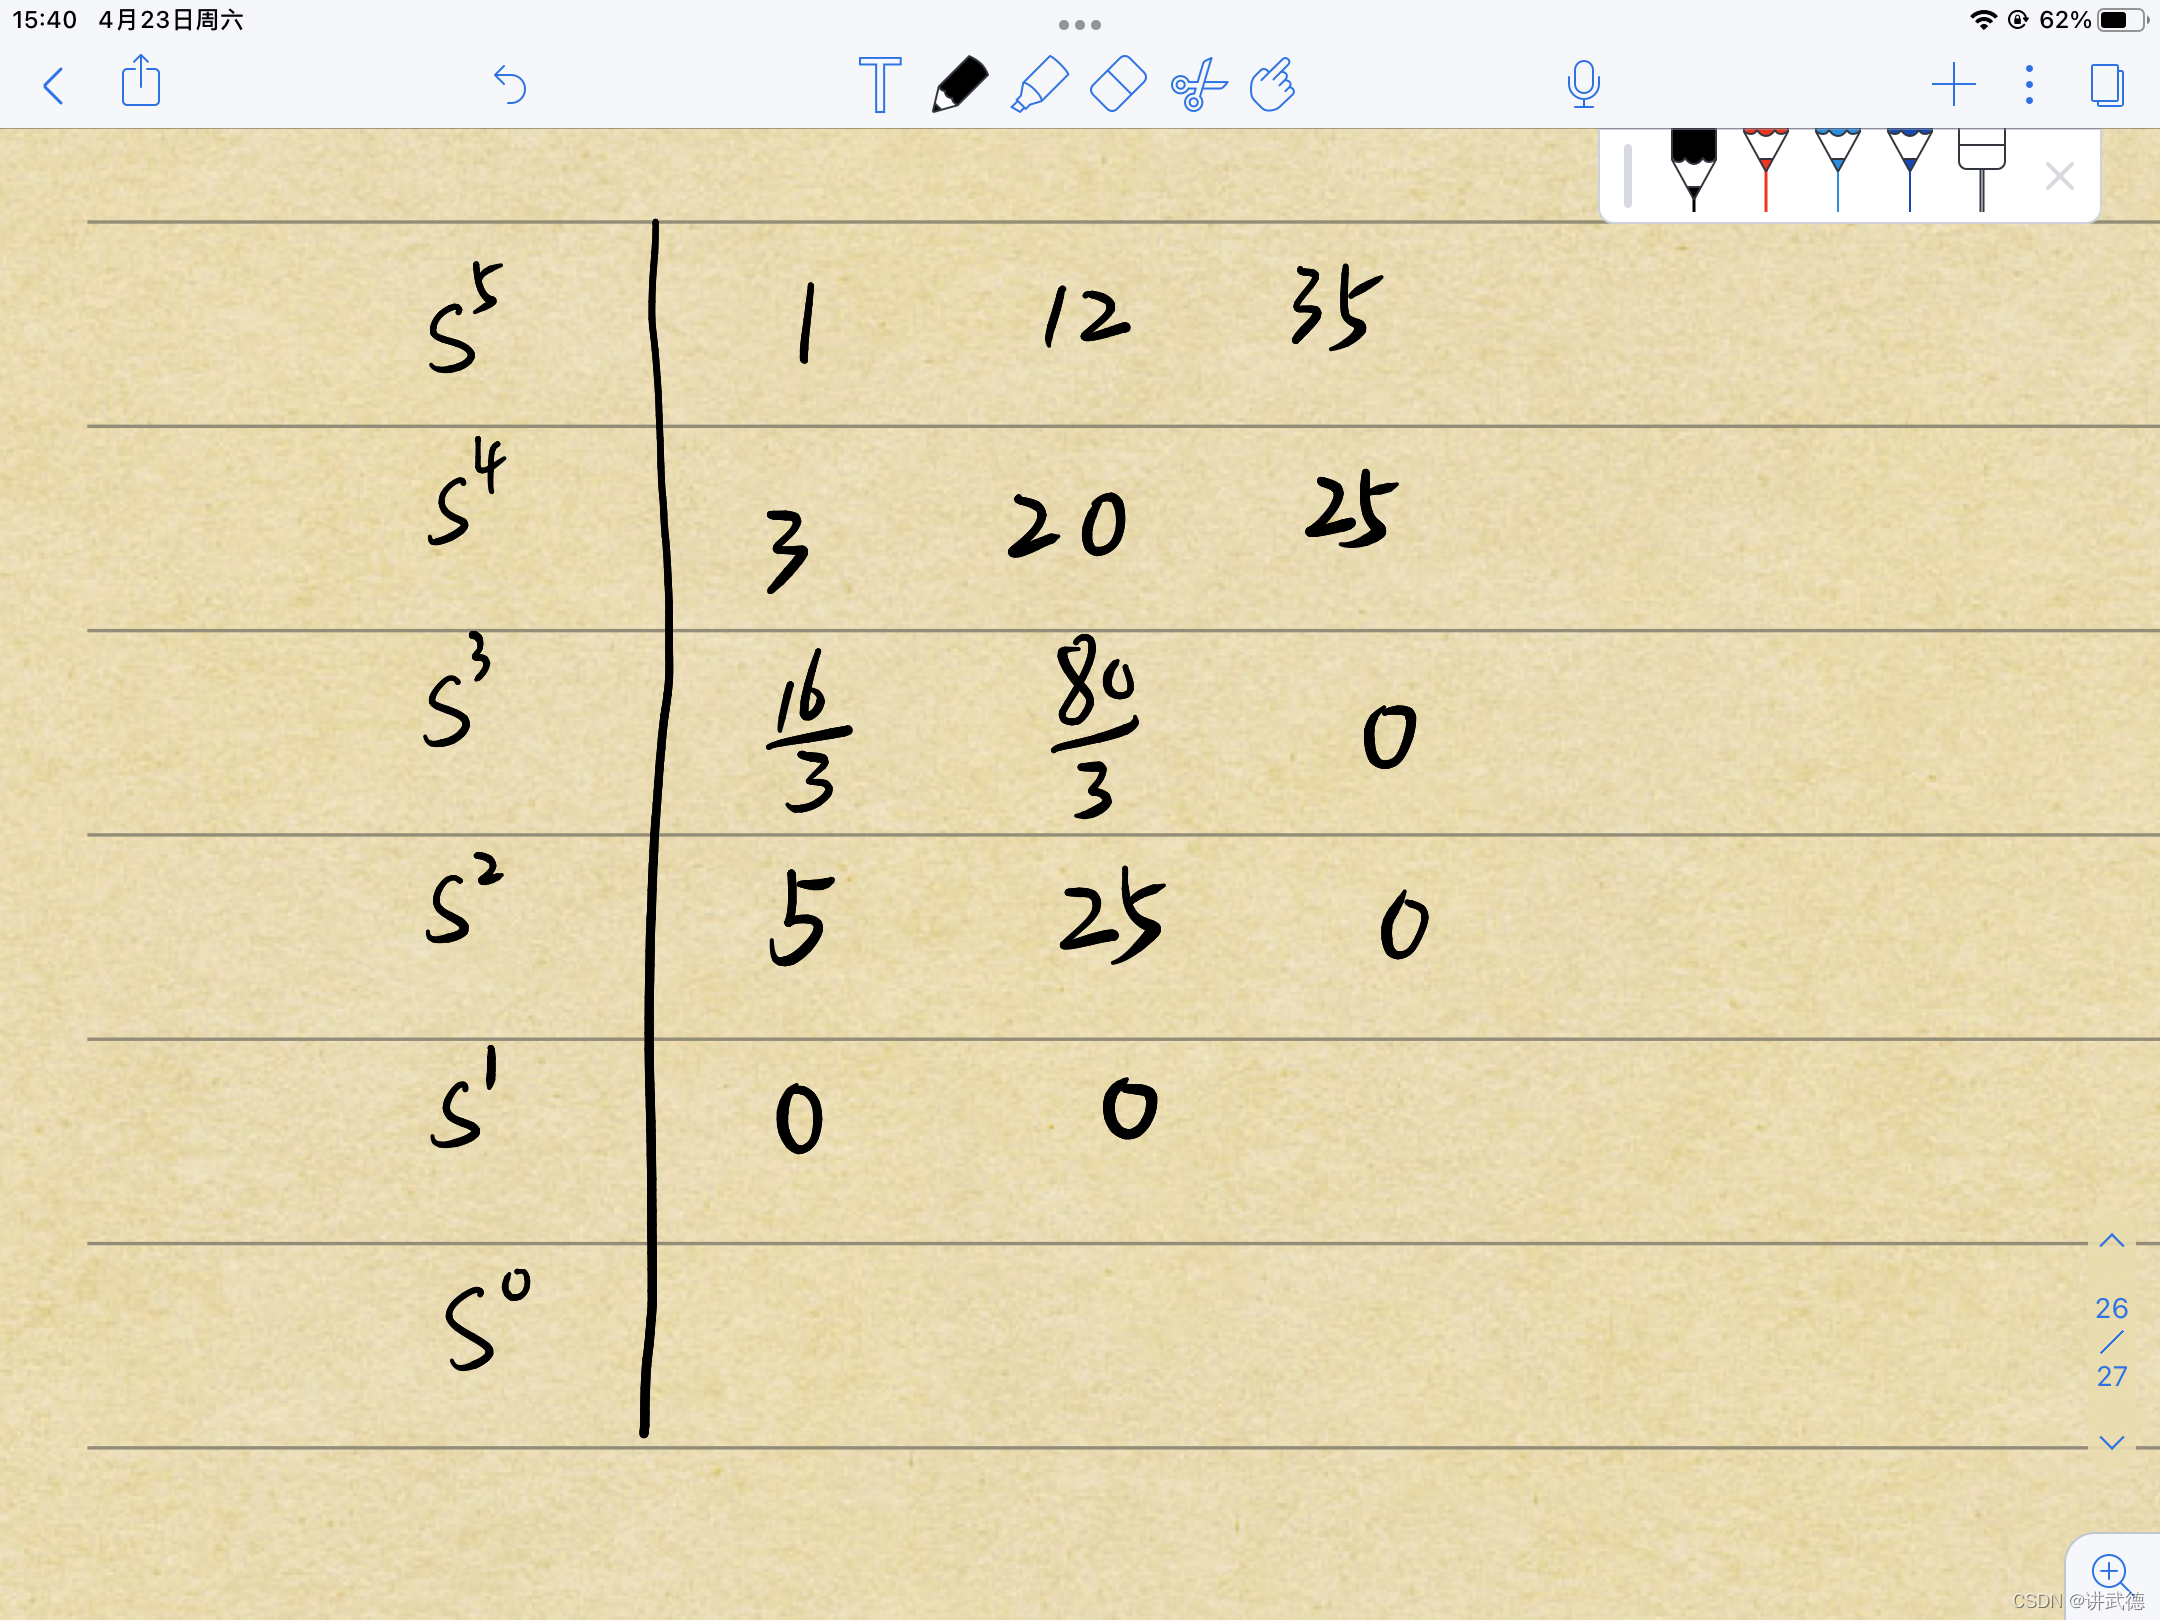 15:40 4月23日周六 62%
S⁵ 1 12 35
S⁴ 3 20 25
S³ 16/3 80/3 0
S² 5 25 0
S¹ 0 0
S⁰
26
/
27
CSDN @讲武德